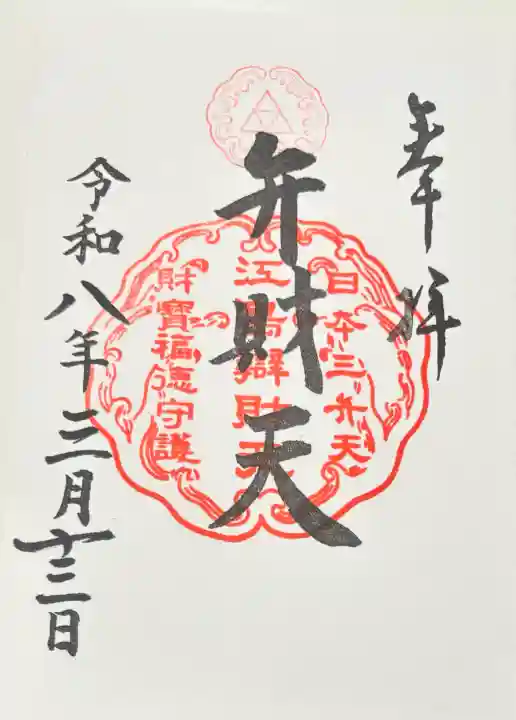 奉拝
日本三弁天
江島辨財天
財寶福徳守護
弁財天
令和八年三月十三日